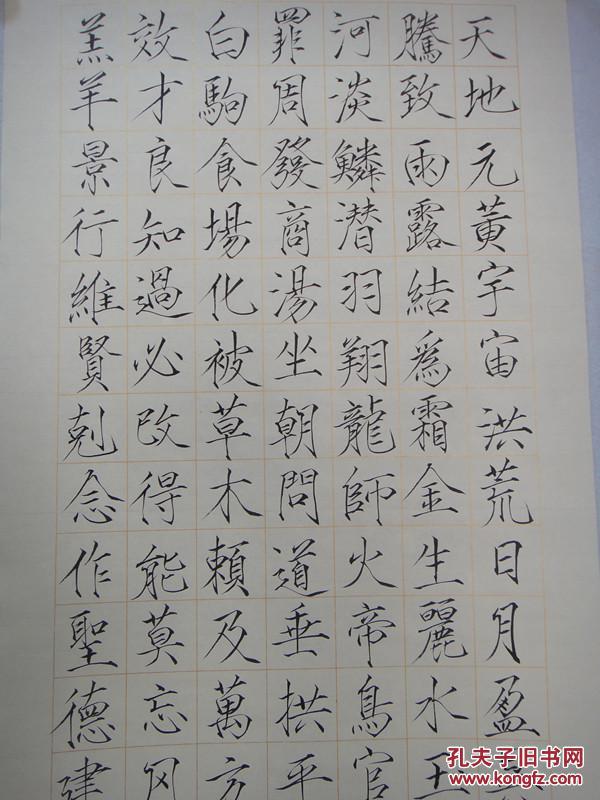 天地元黃宇宙洪荒日月盈
騰致雨露結爲霜金生麗水玉
河淡鱗潜羽翔龍師火帝鳥官
罪周發商湯坐朝問道垂拱平
白駒食場化被草木賴及萬方
效才良知過必改得能莫忘罔
羔羊景行維賢剋念作聖德建
孔夫子旧书网
www.kongfz.com